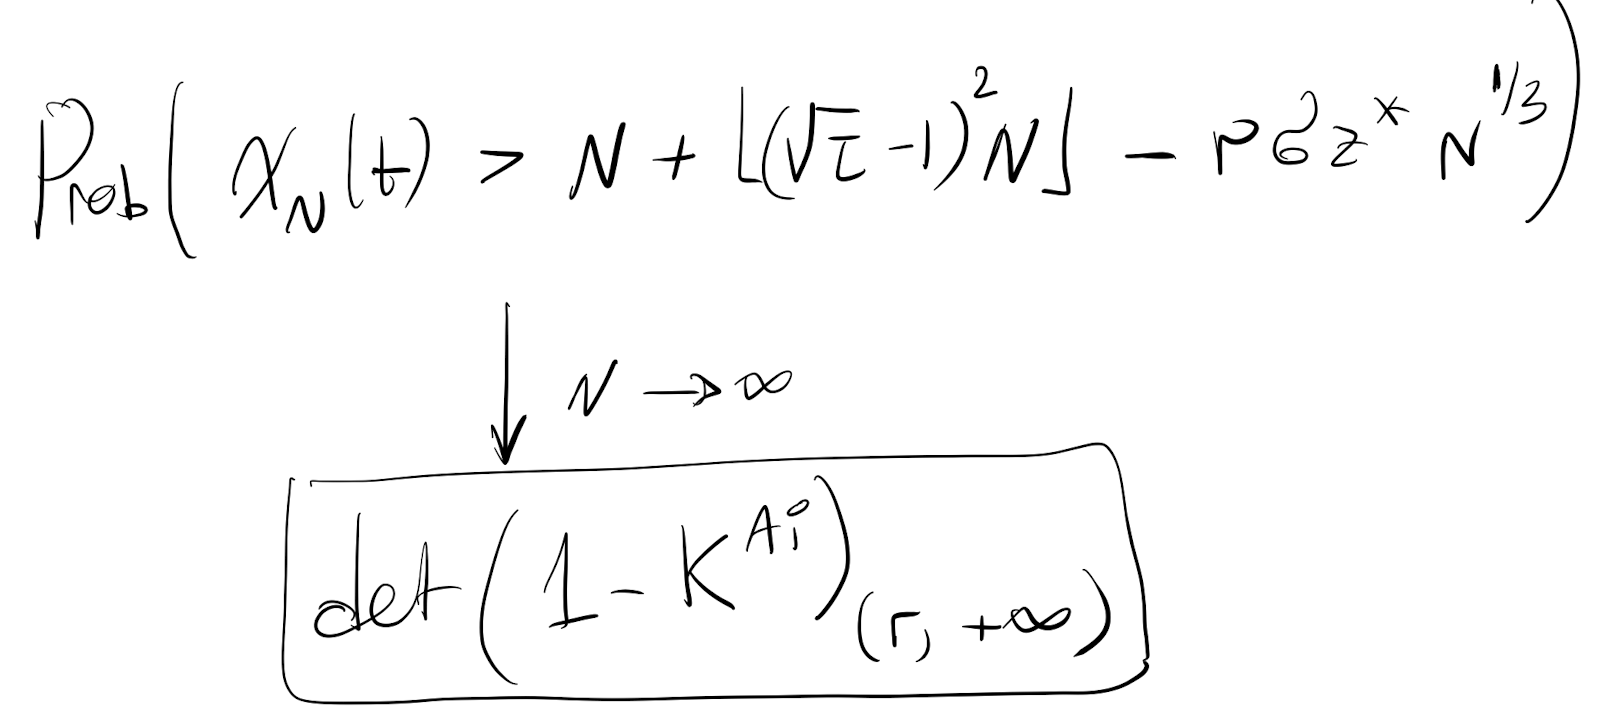 Prob( x_N(t) > N + ⌊(√τ - 1)² N⌋ - r σ z* N^{1/3} )
↓ N → ∞
det( 1 - K^{Ai} )_{(r, +∞)}